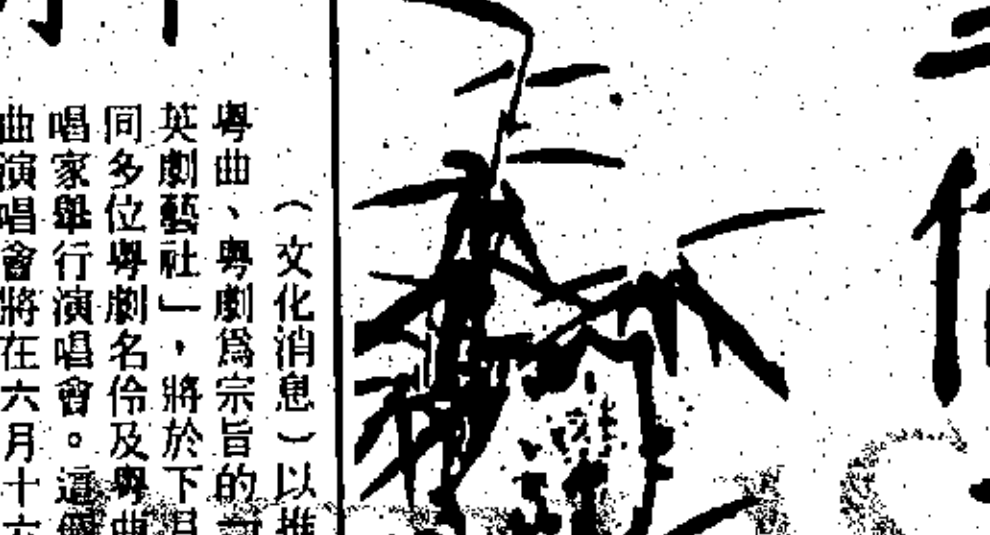 （文化消息）以推
粵曲、粵劇爲宗旨的
英劇藝社」，將於下月
同多位粵劇名伶及粵曲
唱家舉行演唱會。這個
曲演唱會將在六月十六